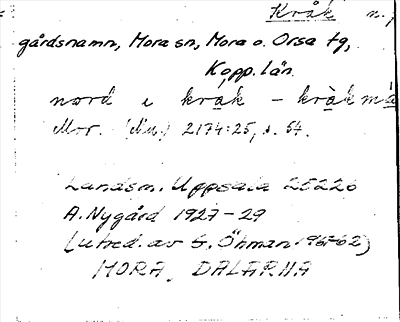 Kråk n.
gårdsnamn, Mora sn, Mora o. Orsa tg,
Kopp. län.
nord i kråk – kråk
Mor. 2174:25, s. 54.
Landsm. Uppsala 25220
A. Nygård 1927–29
(utred. av S. Öhman 1961-62)
MORA, DALARNA